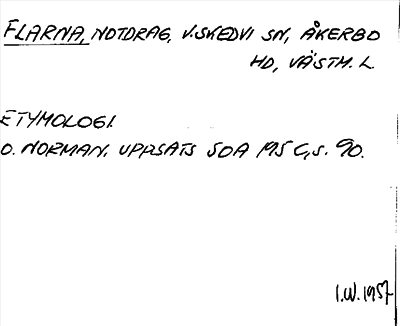 FLARNA, NOTDRAG, V.SKEDVI SN, ÅKERBO
HD, VÄSTM. L.
ETYMOLOGI.
O. NORMAN. UPPSATS SOA 195 C, S. 90.
I.W. 1957